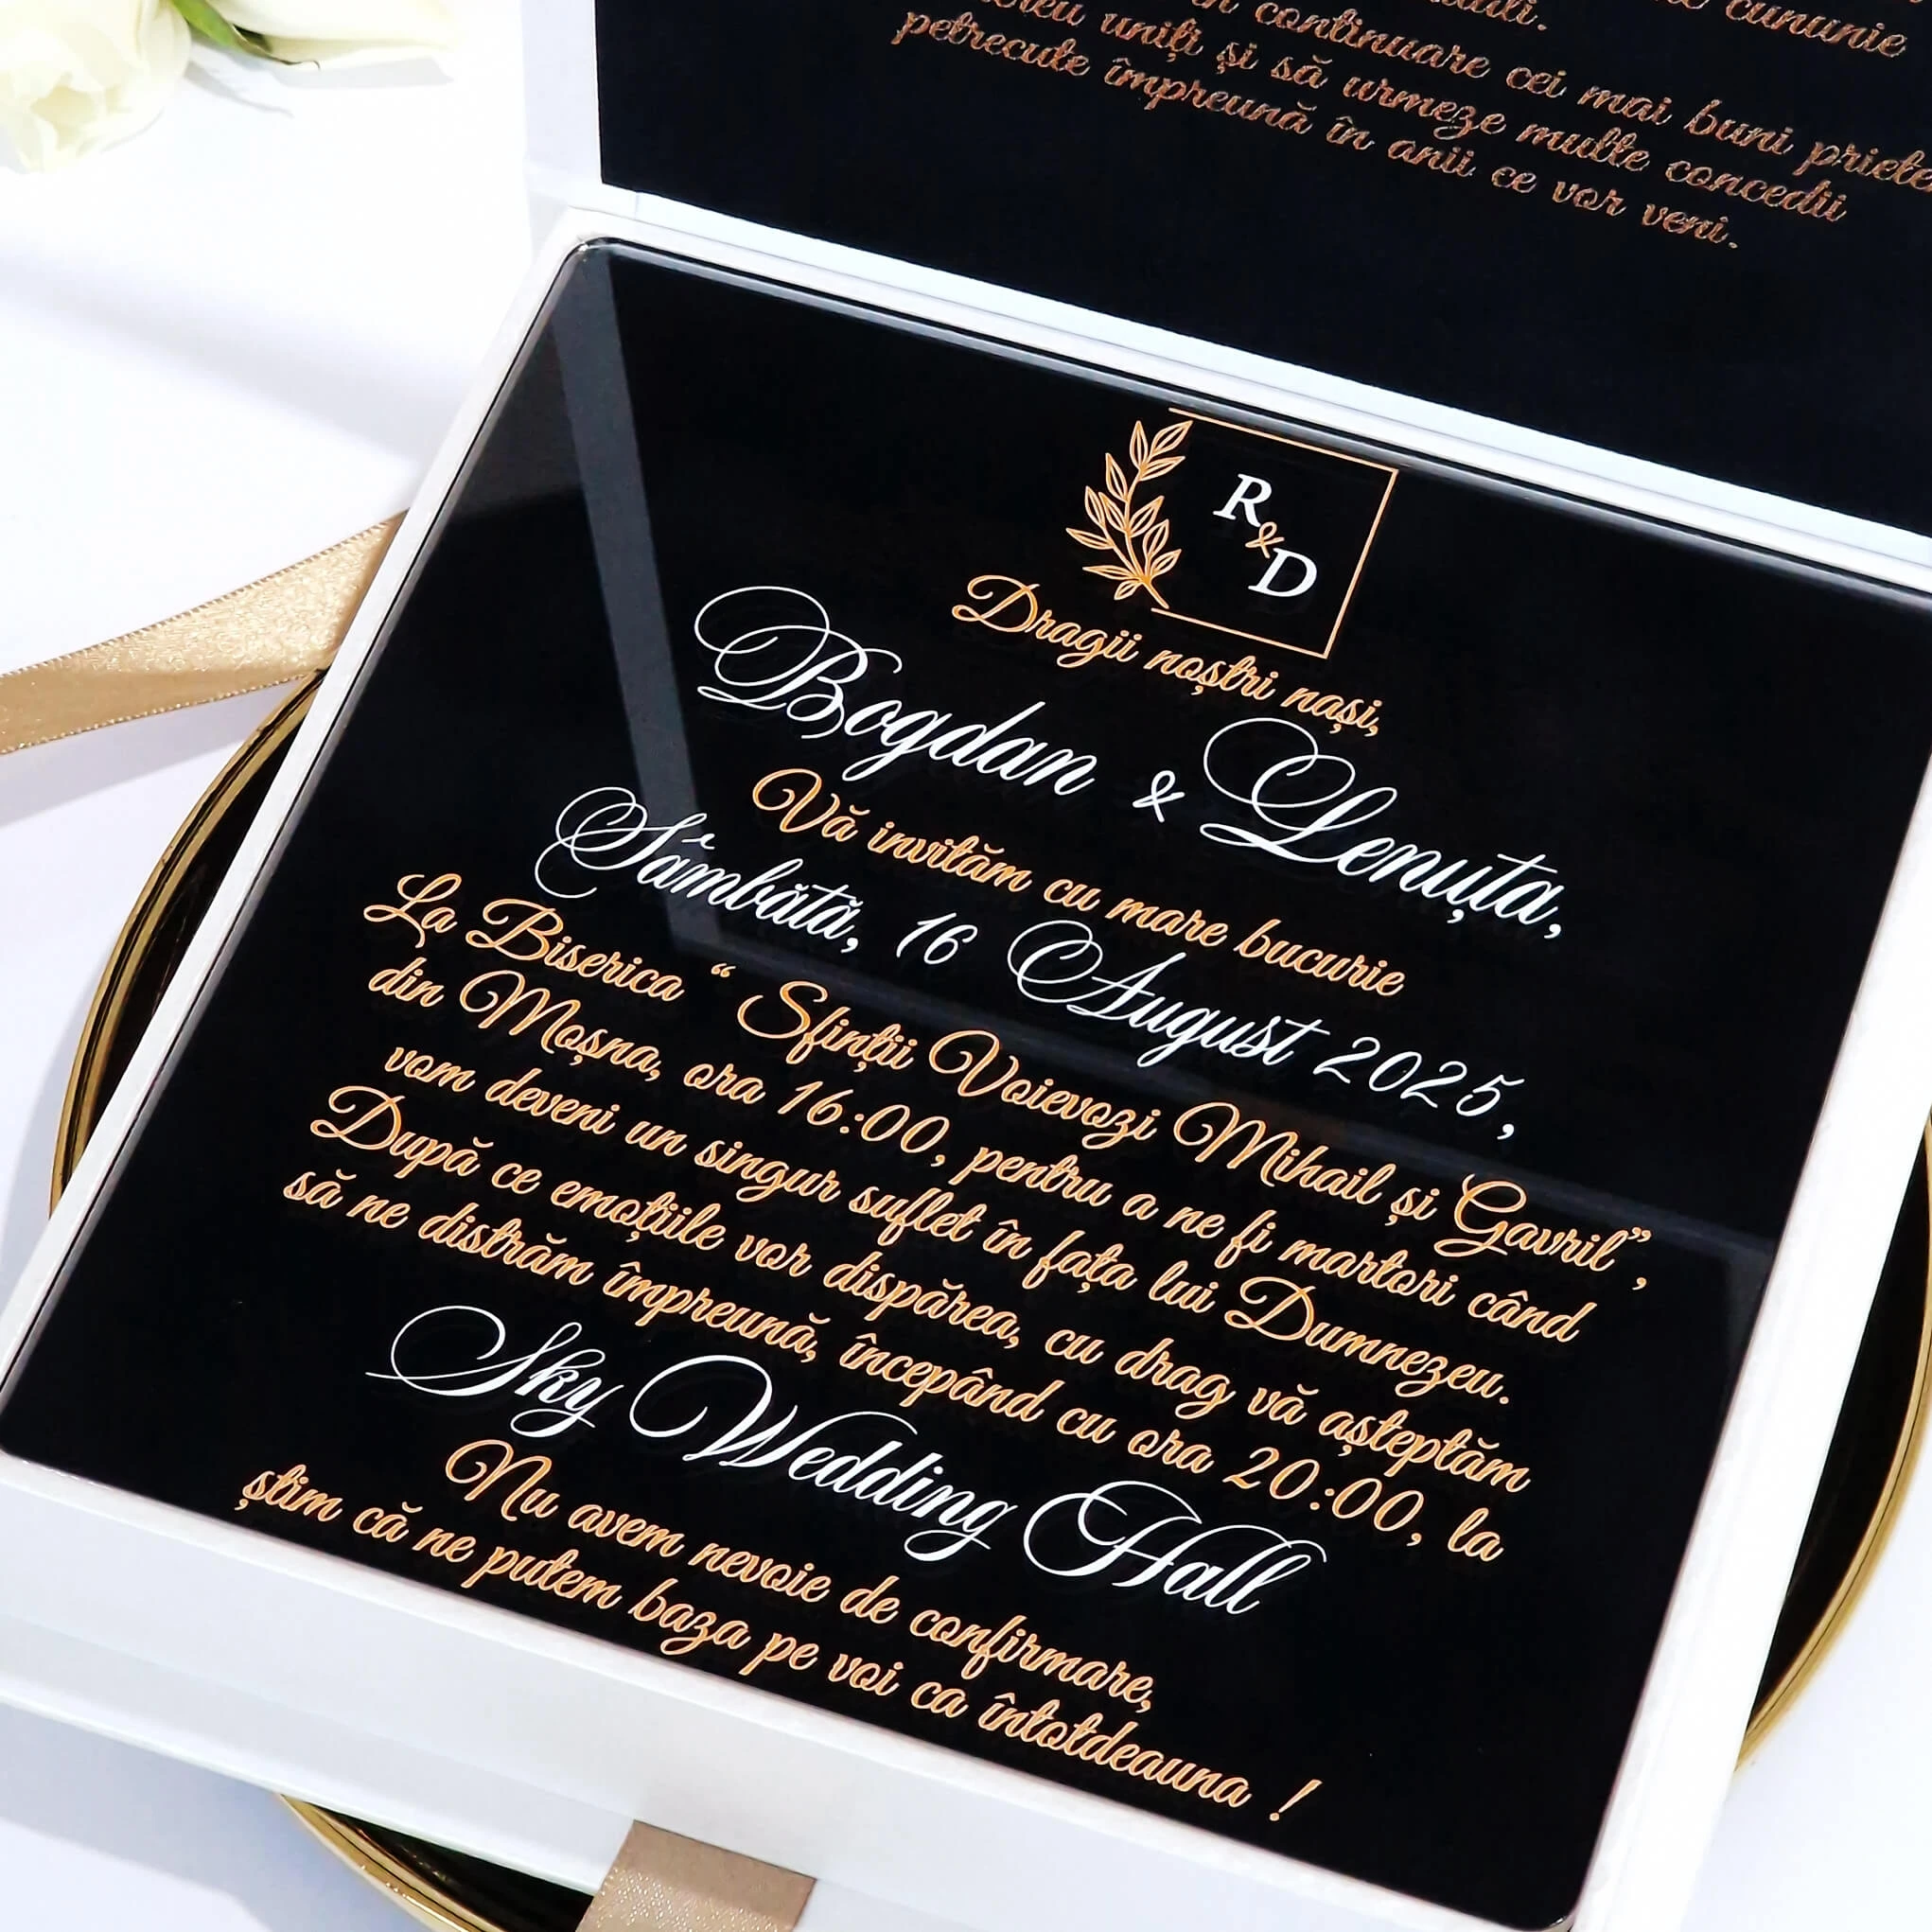 cununie
în continuare cei mai buni
uniți și să urmeze multe concedii
petrecute împreună în anii ce vor veni.
R
&
D
Dragii noștri nași,
Bogdan & Lenuța,
Vă invităm cu mare bucurie
Sâmbătă, 16 August 2025,
La Biserica “ Sfinții Voievozi Mihail și Gavril”,
din Moșna, ora 16:00, pentru a ne fi martori când
vom deveni un singur suflet în fața lui Dumnezeu.
După ce emoțiile vor dispărea, cu drag vă așteptăm
să ne distrăm împreună, începând cu ora 20:00, la
Sky Wedding Hall
Nu avem nevoie de confirmare,
știm că ne putem baza pe voi ca întotdeauna !